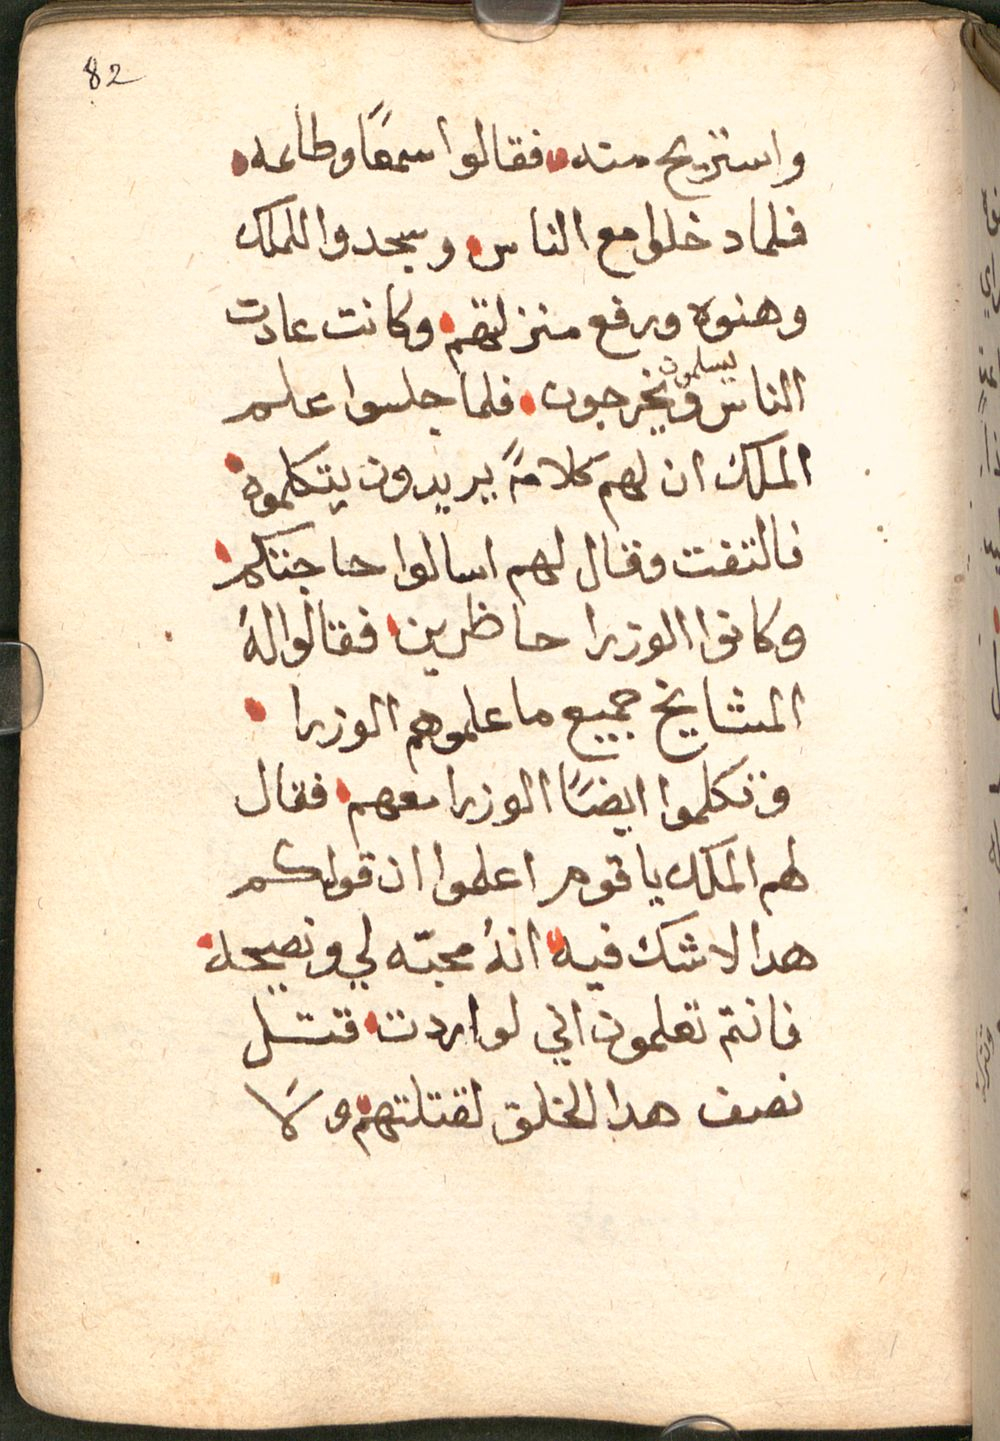 82
واستريح منه فقالوا سمعًا وطاعه
فلما دخلوا مع الناس وسجدوا للملك
وهنوه ورفع منزلتهم وكانت عادت
يسلمون
الناس ويخرجون فلما جلسوا علم
الملك ان لهم كلامًا يريدون يتكلمون
فالتفت وقال لهم اسالوا حاجتكم
وكانوا الوزرا حاظرين فقالوا لهُ
المشايخ جميع ما علموهم الوزرا
وتكلموا ايضًا الوزرا معهم فقال
لهم الملك يا قوم اعلموا ان قولكم
هدا لا شك فيه انهُ محبّه لي ونصيحه
فانتم تعلمون اني لو اردت قتل
نصف هدا الخلق لقتلتهم ولا